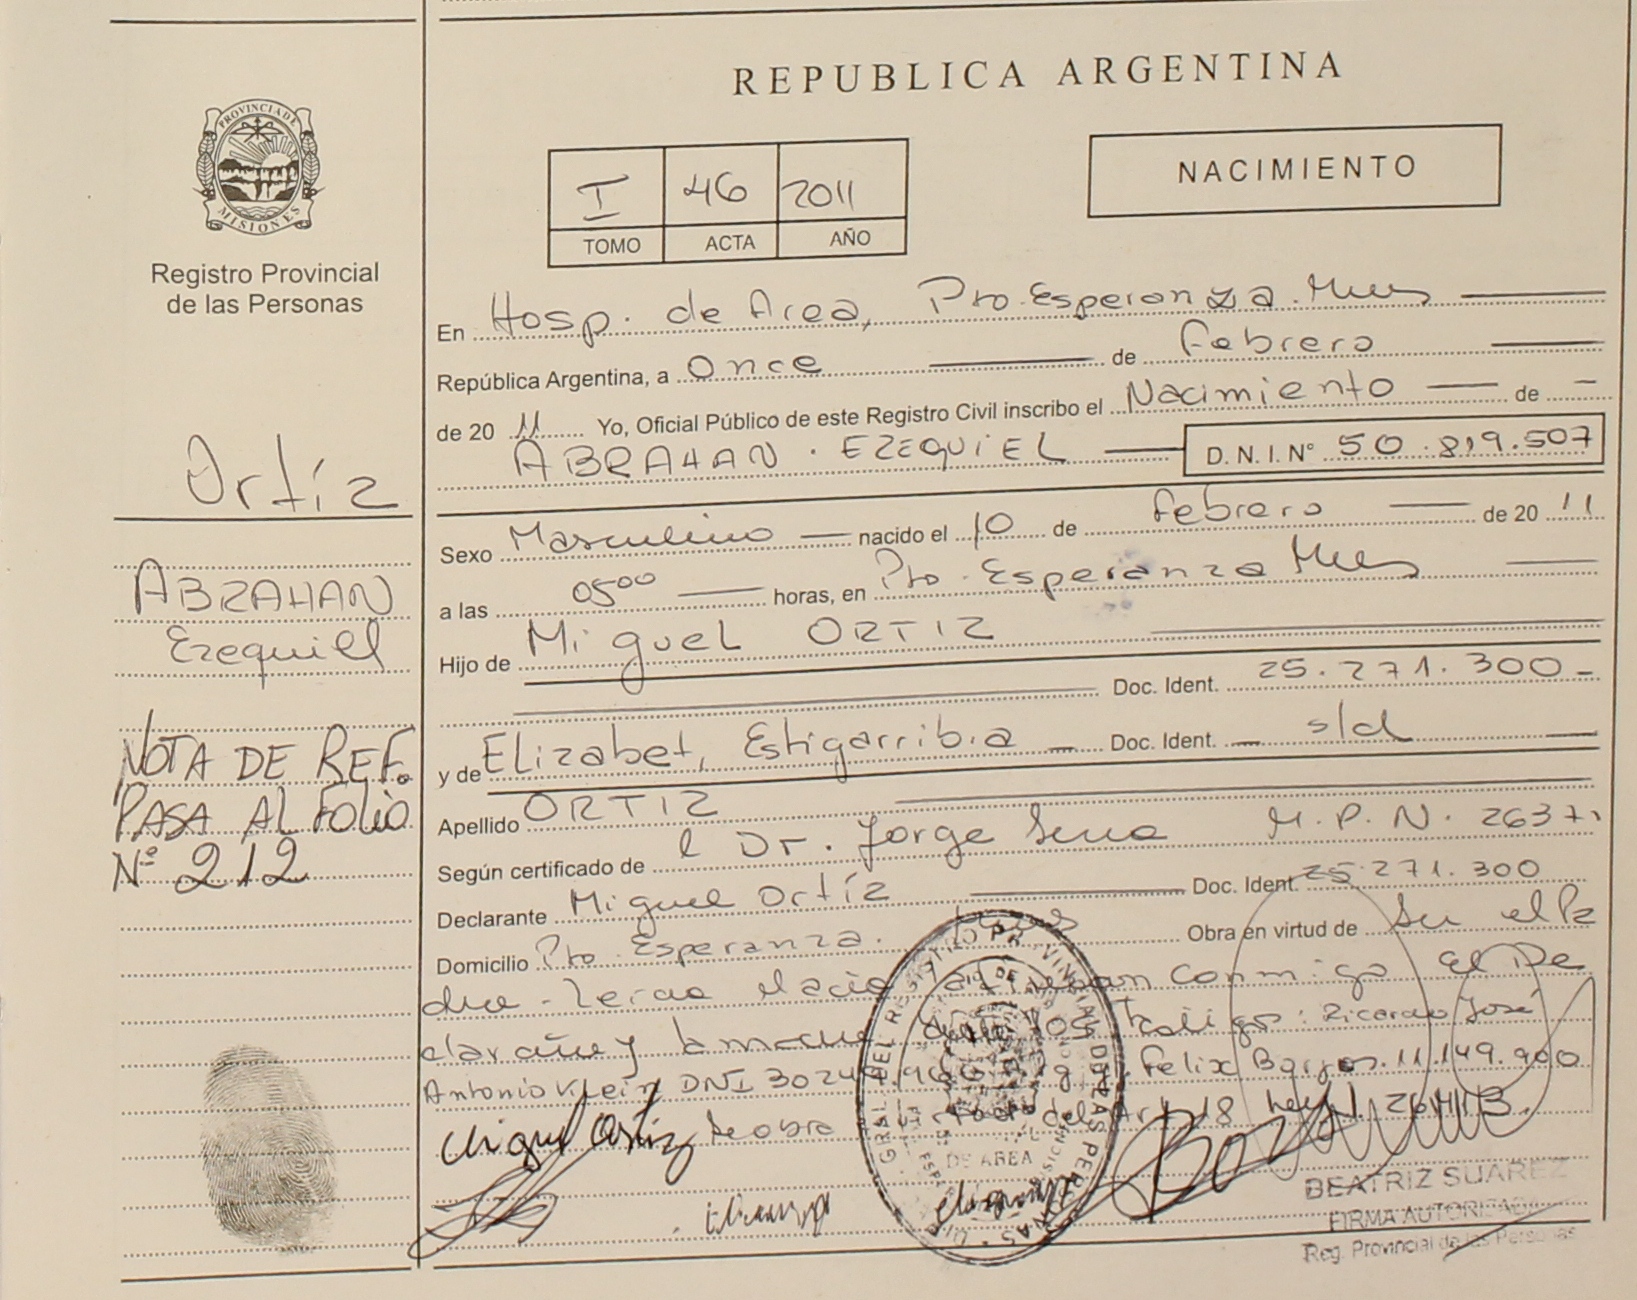 REPUBLICA ARGENTINA
PROVINCIA DE
MISIONES
Registro Provincial
de las Personas
I 46 2011
TOMO ACTA AÑO
NACIMIENTO
En Hosp. de Area, Pto. Esperanza. Mnes
República Argentina, a Once de Febrero
de 20 11 Yo, Oficial Público de este Registro Civil inscribo el Nacimiento de
ABRAHAN. EZEQUIEL D. N. I. N° 50.819.507
Ortíz
Sexo Masculino nacido el 10 de febrero de 20 11
ABRAHAN
Ezequiel
a las 0500 horas, en Pto. Esperanza Mnes
Hijo de Miguel ORTIZ
Doc. Ident. 25.271.300-
y de Elizabet, Estigarribia Doc. Ident. s/d
NOTA DE REF.
PASA AL FOLIO
Nº 212
Apellido ORTIZ
Según certificado de l Dr. Jorge M.P.N. 2637
Declarante Miguel Ortíz Doc. Ident. 25.271.300
Domicilio Pto Esperanza. Obra en virtud de Ser el Pa
conmigo El De
Ricardo José
Antonio Klein DNI Felix Bargos. 11.149.900
Miguel Ortiz del Art. 18 Ley
DE AREA
BEATRIZ SUAREZ
FIRMA AUTORIZADA
Reg. Provincial de las Personas